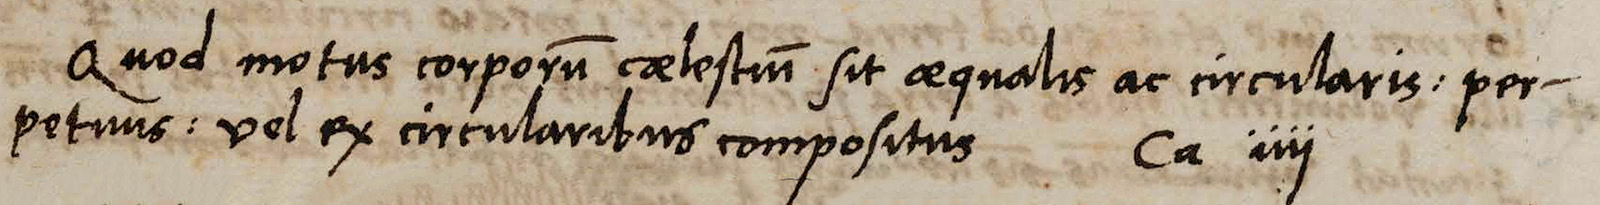 Quod motus corporū cælestiū sit æqualis ac circularis: per-
petuus: vel ex circularibus compositus Ca iiij